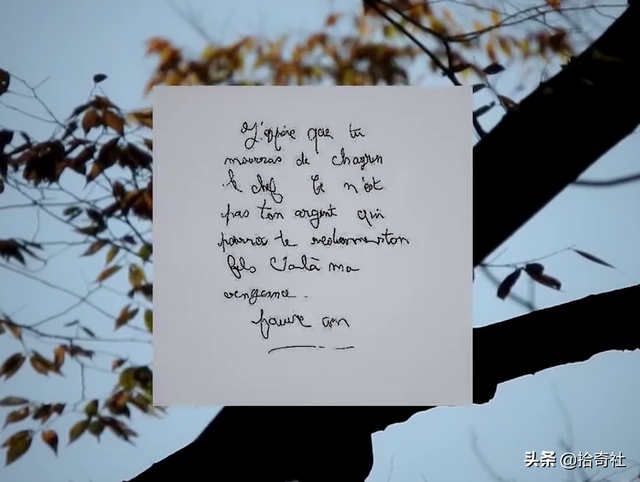 J'espère que tu
mourras de chagrin
le chef Ce n'est
pas ton argent qui
pourra te redonner ton
fils Voilà ma
vengeance.
Pauvre con
头条 @拾奇社